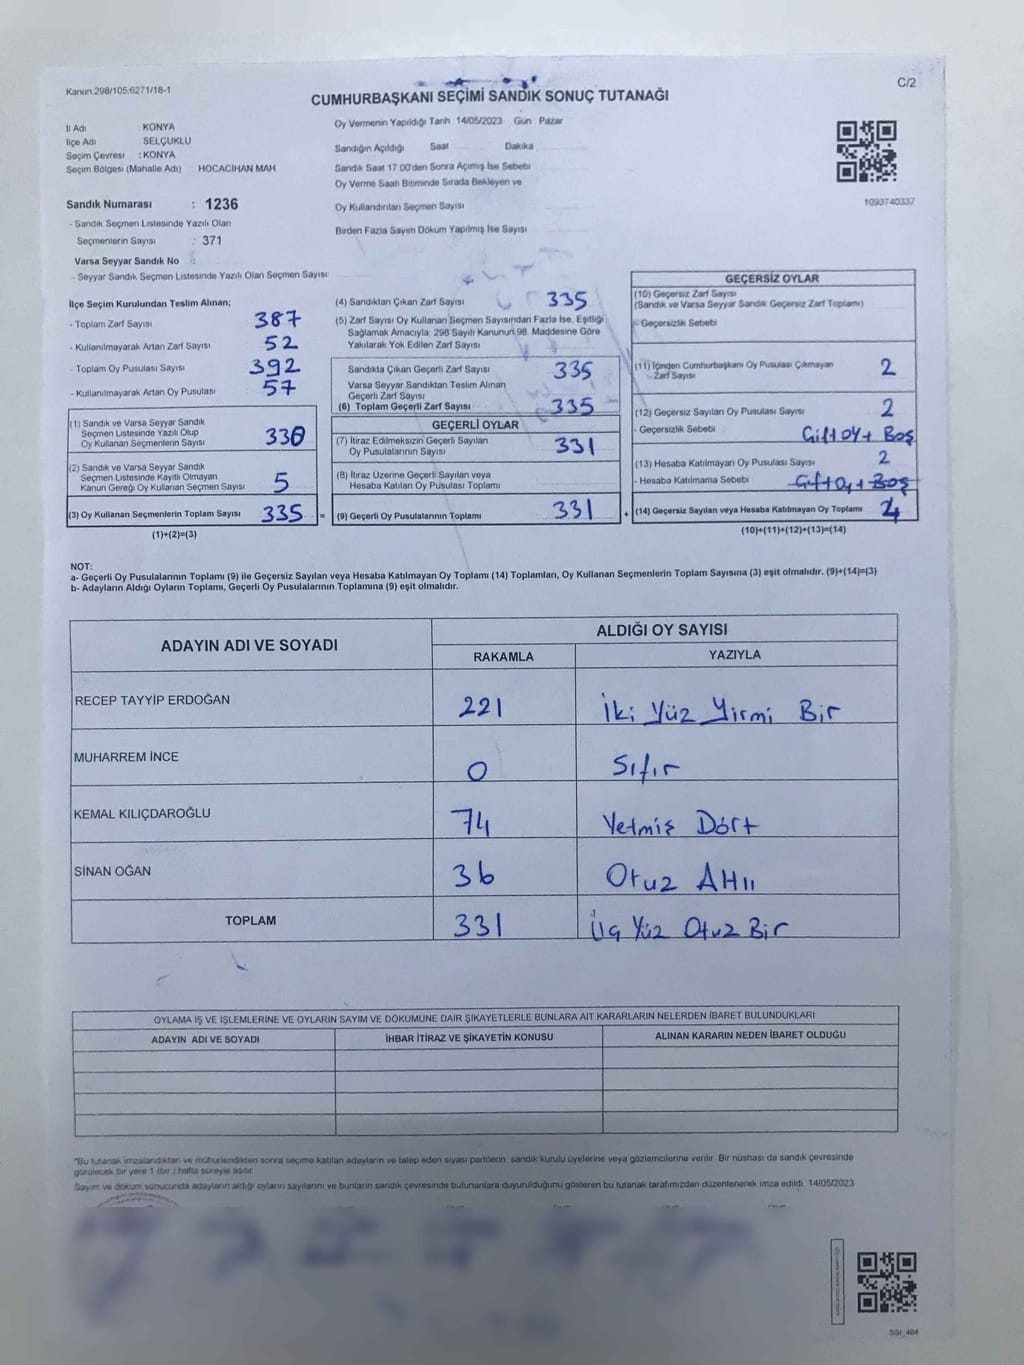 Kanun.298/105.6271/18-1
C/2
CUMHURBAŞKANI SEÇİMİ SANDIK SONUÇ TUTANAĞI
İl Adı KONYA
İlçe Adı SELÇUKLU
Seçim Çevresi : KONYA
Seçim Bölgesi (Mahalle Adı) HOCACİHAN MAH
Sandık Numarası : 1236
- Sandık Seçmen Listesinde Yazılı Olan
Seçmenlerin Sayısı : 371
Varsa Seyyar Sandık No :
- Seyyar Sandık Seçmen Listesinde Yazılı Olan Seçmen Sayısı
Oy Vermenin Yapıldığı Tarih 14/05/2023 Gün Pazar
Sandığın Açıldığı Saat Dakika
Sandık Saat 17.00'den Sonra Açımış İse Sebebi
Oy Verme Saati Bitiminde Sırada Bekleyen ve
Oy Kullandırılan Seçmen Sayısı
Birden Fazla Sayım Döküm Yapılmış İse Sayısı
1093740337
İlçe Seçim Kurulundan Teslim Alınan;
- Toplam Zarf Sayısı 387
- Kullanılmayarak Artan Zarf Sayısı 52
- Toplam Oy Pusulası Sayısı 392
- Kullanılmayarak Artan Oy Pusulası 57
(1) Sandık ve Varsa Seyyar Sandık
Seçmen Listesinde Yazılı Olup
Oy Kullanan Seçmenlerin Sayısı 330
(2) Sandık ve Varsa Seyyar Sandık
Seçmen Listesinde Kayıtlı Olmayan
Kanun Gereği Oy Kullanan Seçmen Sayısı 5
(3) Oy Kullanan Seçmenlerin Toplam Sayısı 335 =
(1)+(2)=(3)
(4) Sandıktan Çıkan Zarf Sayısı 335
(5) Zarf Sayısı Oy Kullanan Seçmen Sayısından Fazla İse, Eşitliği
Sağlamak Amacıyla, 298 Sayılı Kanunun 98. Maddesine Göre
Yakılarak Yok Edilen Zarf Sayısı
Sandıkla Çıkan Geçerli Zarf Sayısı 335
Varsa Seyyar Sandıktan Teslim Alınan
Geçerli Zarf Sayısı
(6) Toplam Geçerli Zarf Sayısı 335
GEÇERLİ OYLAR
(7) İtiraz Edilmeksizin Geçerli Sayılan
Oy Pusulalarının Sayısı 331
(8) İtiraz Üzerine Geçerli Sayılan veya
Hesaba Katılan Oy Pusulası Toplamı
(9) Geçerli Oy Pusulalarının Toplamı 331 +
GEÇERSİZ OYLAR
(10) Geçersiz Zarf Sayısı
(Sandık ve Varsa Seyyar Sandık Geçersiz Zarf Toplamı)
- Geçersizlik Sebebi
(11) İçinden Cumhurbaşkanı Oy Pusulası Çıkmayan
Zarf Sayısı 2
(12) Geçersiz Sayılan Oy Pusulası Sayısı 2
- Geçersizlik Sebebi Çift OY + Boş
(13) Hesaba Katılmayan Oy Pusulası Sayısı 2
- Hesaba Katılmama Sebebi Çift Oy + Boş
(14) Geçersiz Sayılan veya Hesaba Katılmayan Oy Toplamı 4
(10)+(11)+(12)+(13)=(14)
NOT:
a- Geçerli Oy Pusulalarının Toplamı (9) ile Geçersiz Sayılan veya Hesaba Katılmayan Oy Toplamı (14) Toplamları, Oy Kullanan Seçmenlerin Toplam Sayısına (3) eşit olmalıdır. (9)+(14)=(3)
b- Adayların Aldığı Oyların Toplamı, Geçerli Oy Pusulalarının Toplamına (9) eşit olmalıdır.
ADAYIN ADI VE SOYADI
ALDIĞI OY SAYISI
RAKAMLA YAZIYLA
RECEP TAYYİP ERDOĞAN 221 İki Yüz Yirmi Bir
MUHARREM İNCE 0 Sıfır
KEMAL KILIÇDAROĞLU 74 Yetmiş Dört
SİNAN OĞAN 36 Otuz Altı
TOPLAM 331 Üç Yüz Otuz Bir
OYLAMA İŞ VE İŞLEMLERİNE VE OYLARIN SAYIM VE DÖKÜMÜNE DAİR ŞİKAYETLERLE BUNLARA AİT KARARLARIN NELERDEN İBARET BULUNDUKLARI
ADAYIN ADI VE SOYADI İHBAR İTİRAZ VE ŞİKAYETİN KONUSU ALINAN KARARIN NEDEN İBARET OLDUĞU
*Bu tutanak imzalandıktan ve mühürlendikten sonra seçime katılan adayların ve talep eden siyasi partilerin sandık kurulu üyelerine veya gözlemcilerine verilir. Bir nüshası da sandık çevresinde
görülecek bir yere 1 (bir ) hafta süreyle asılır
Sayım ve döküm sonucunda adayların aldığı oyların sayılarını ve bunların sandık çevresinde bulunanlara duyurulduğunu gösteren bu tutanak tarafımızdan düzenlenerek imza edildi. 14/05/2023